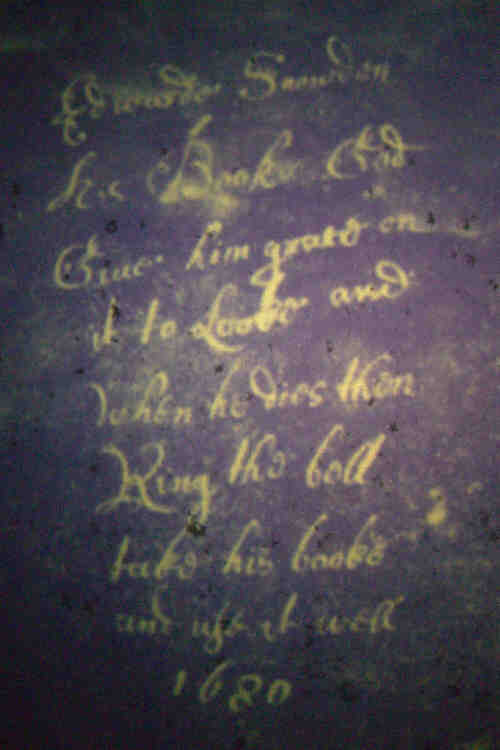 Edwarde Snowden
his Booke God
Giue him grace on
it to Looke and
when he dies then
Ring the bell
take his booke
and use it well
1680